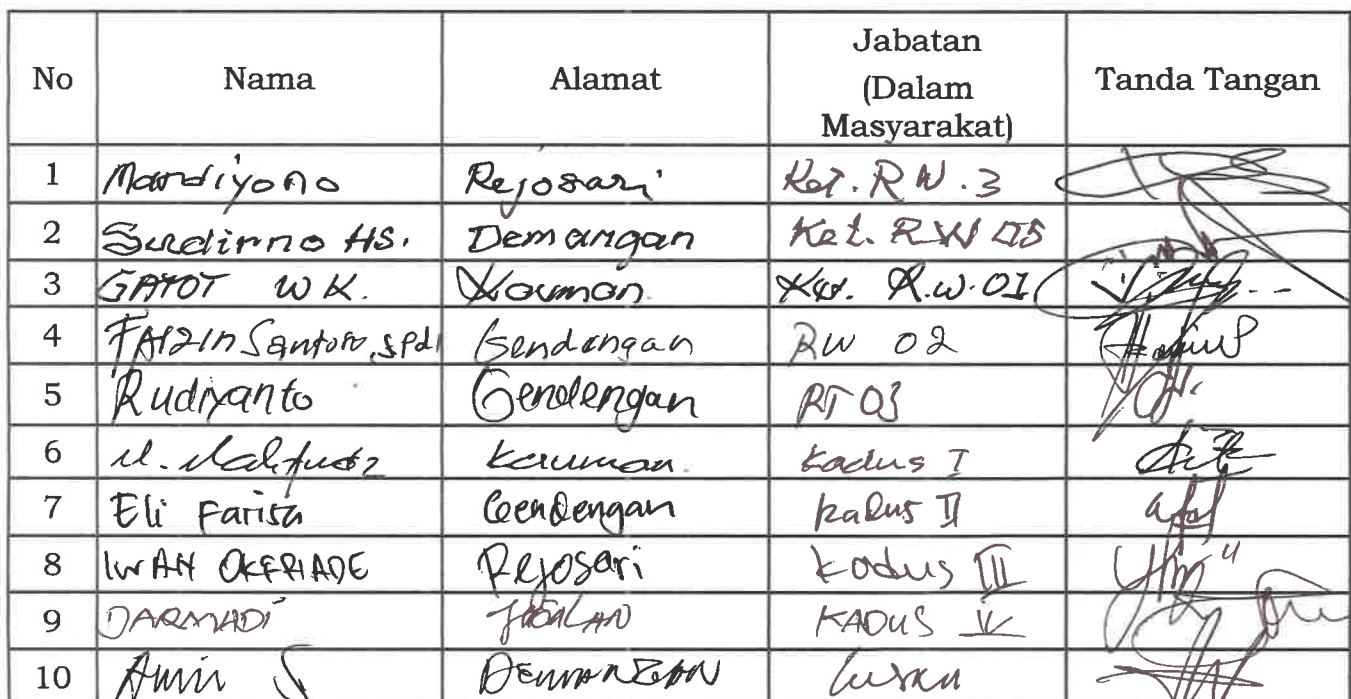 No Nama Alamat Jabatan (Dalam Masyarakat) Tanda Tangan
1 Mardiyono Rejosari Ket. RW. 3
2 Sudirno HS. Demangan Ket. RW 05
3 GATOT WK. Kauman R.W. 01
4 FAIZIN Santoso, SPdI Gendengan RW 02
5 Rudiyanto Gendengan RT 03
6 M. Mahfudz Kauman Kadus I
7 Eli Farisa Gendengan Kadus II
8 IWAN Rejosari Kadus III
9 DARMADI KADUS
10 Amin S DEMANGAN